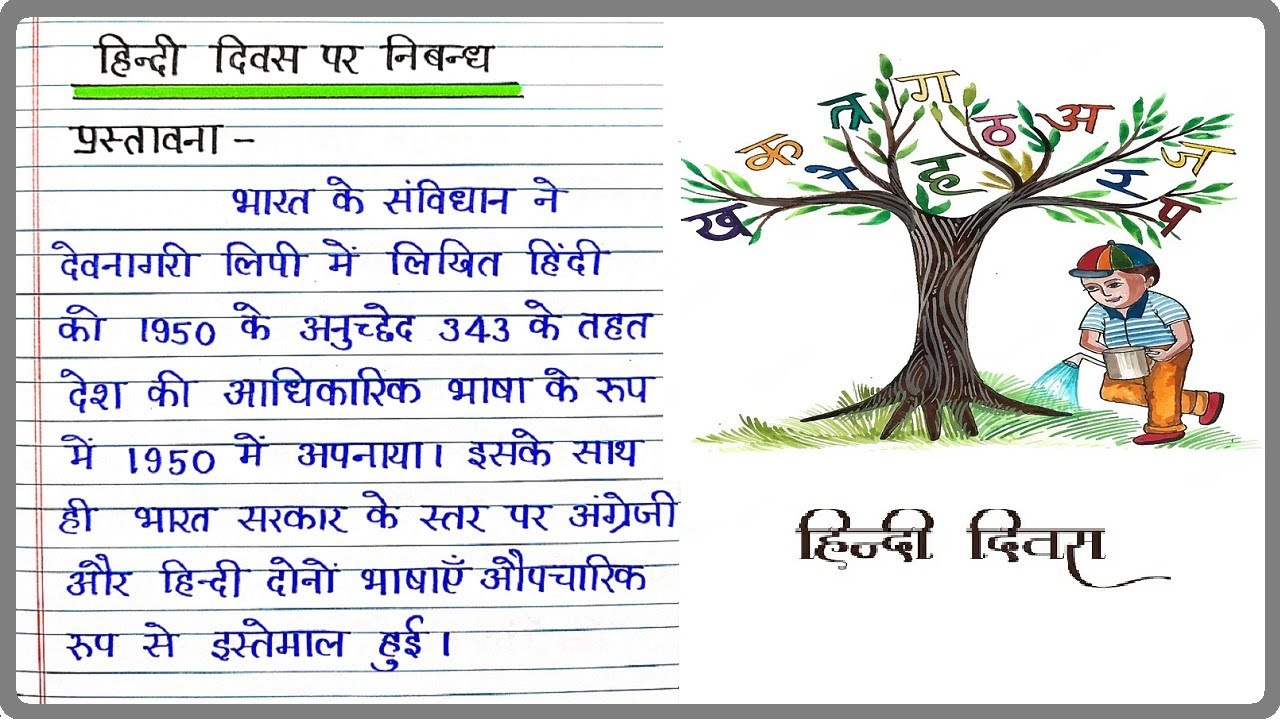 हिन्दी दिवस पर निबन्ध
प्रस्तावना -
भारत के संविधान ने
देवनागरी लिपी में लिखित हिंदी
को 1950 के अनुच्छेद 343 के तहत
देश की आधिकारिक भाषा के रुप
में 1950 में अपनाया। इसके साथ
ही भारत सरकार के स्तर पर अंग्रेजी
और हिन्दी दोनों भाषाएँ औपचारिक
रुप से इस्तेमाल हुई।
ग
त्र
ठ
अ
क
ज
ह
र
ख
प
हिन्दी दिवस